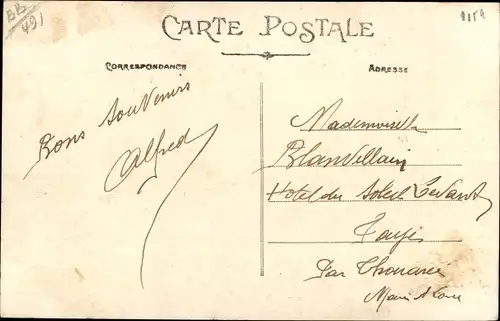 BB
491
CARTE POSTALE
CORRESPONDANCE
ADRESSE
Bons souvenirs
Alfred
Mademoiselle
Blanvillain
Hotel du Soleil Levant
Par Thouarcé
Maine et Loire